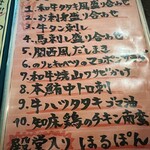 1. 和牛タタキ風盛り合わせ
2. お刺身盛り合わせ
3. 牛タン刺し
4. 馬刺し盛り合わせ
5. 関西風だしまき
6. のりとキャベツのマヨポンサラダ
7. 和牛焼山のサビがけ
8. 本鮪中トロ刺
9. 牛ハツタタキゴマ油
10. 知床鶏のチキン南蛮
殿堂入り ほるぽん